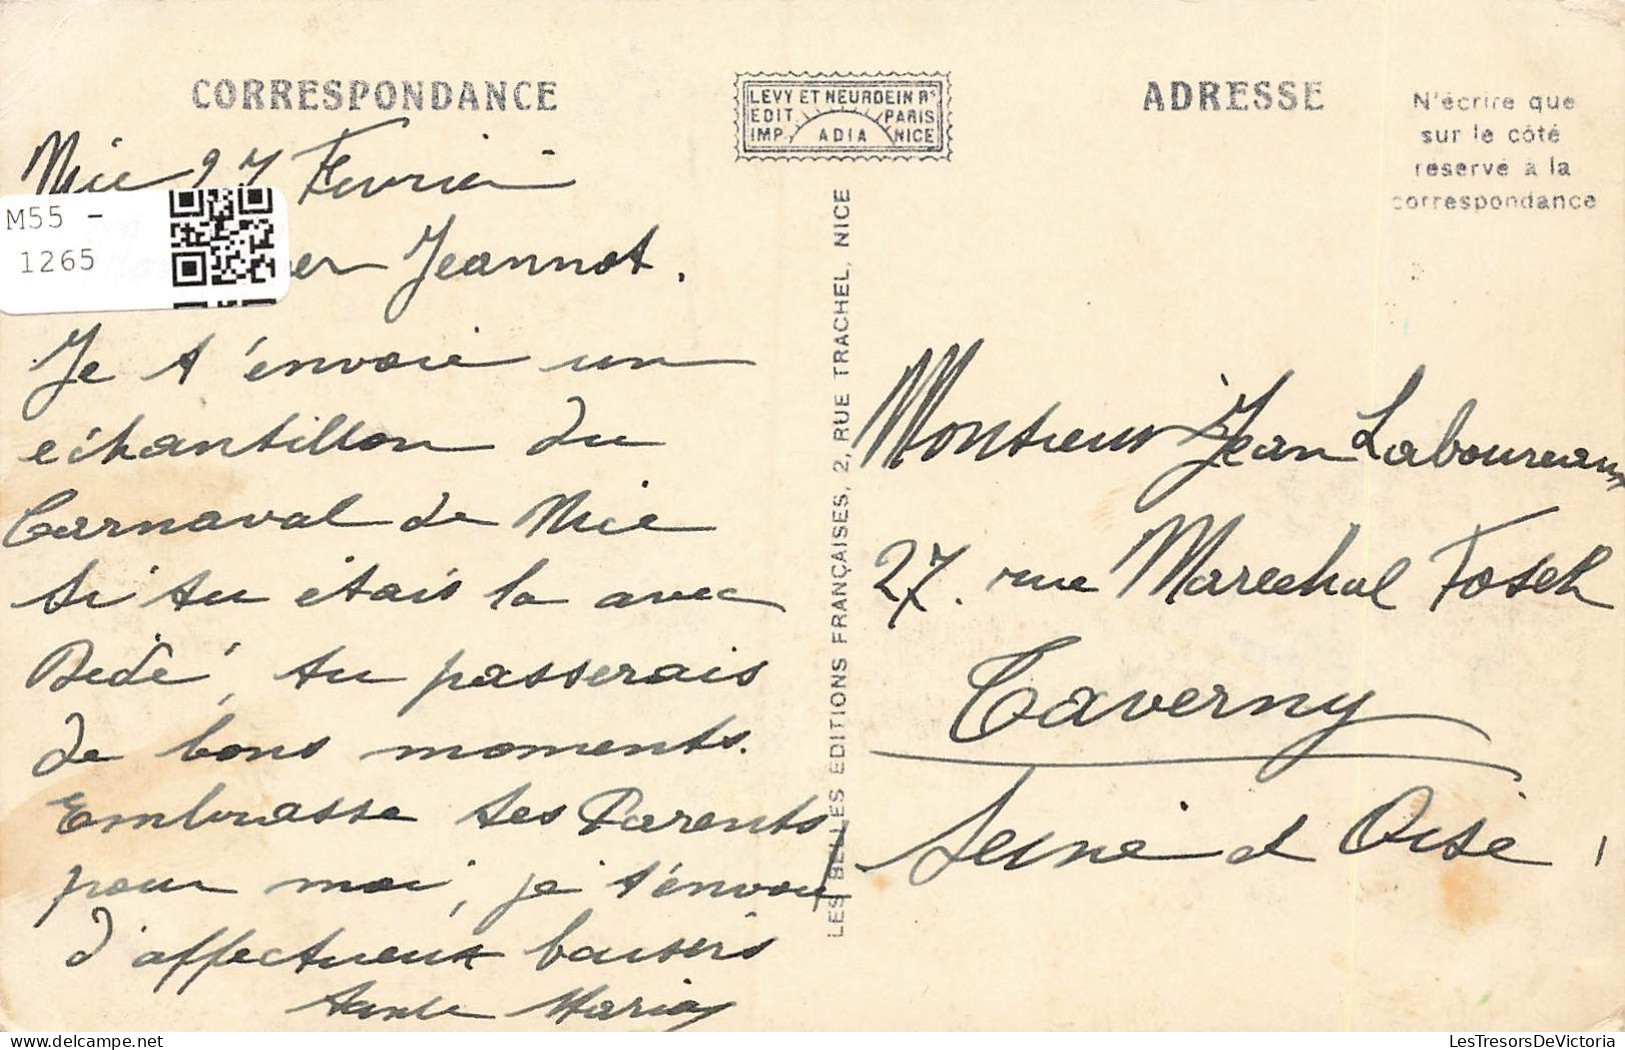 CORRESPONDANCE
LEVY ET NEURDEIN Rs
EDIT. PARIS
IMP. ADIA NICE
ADRESSE
N'écrire que
sur le côté
réservé à la
correspondance
Nice 27 Fevrier
M55 -
1265
er Jeannot.
Je t'envoie un
echantillon du
Carnaval de Nice
Si tu étais la avec
Dédé, tu passerais
de bons moments.
Embrasse tes Parents
pour moi, je t'envoie
d'affectueux baisers
Tante Maria
LES BELLES EDITIONS FRANÇAISES, 2, RUE TRACHEL, NICE
Monsieur Jean Laboureaux
27. rue Marechal Fosch
Taverny
Seine et Oise
LesTresorsDeVictoria